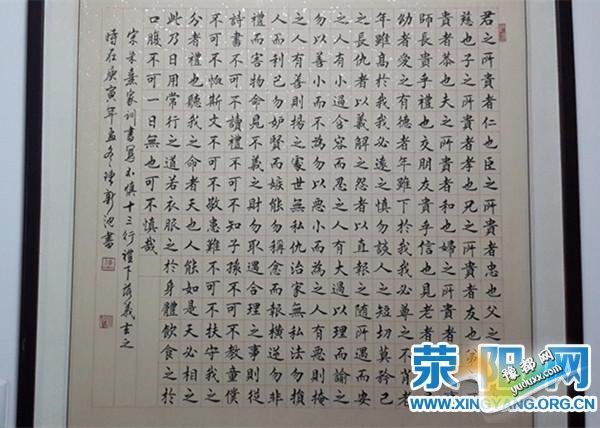 君之所貴者仁也臣之所貴者忠也父之
慈也子之所貴者孝也兄之所貴者友也弟
貴者恭也夫之所貴者和也婦之所
師長貴乎禮也交朋友貴乎信也見老者
幼者愛之有德者年雖下於我我必尊之不肖者
年雖高於我我必遠之慎勿談人之短切莫矜己
之長仇者以義解之怨者以直報之隨所遇而安
之人有小過含容而忍之人有大過以理而諭之
勿以善小而不為勿以惡小而為之人有惡則掩
之人有善則揚之處世無私仇治家無私法勿損
人而利己勿妒賢而嫉能勿稱忿而報橫逆勿非
禮而害物命見不義之財勿取遇合理之事則從
詩書不可不讀禮不可不知子孫不可不教童僕
不可不恤斯文不可不敬患難不可不扶守我之
分者禮也聽我之命者天也人能如是天必相之
此乃日用常行之道若衣服之於身體飲食之於
口腹不可一日無也可不慎哉
宋朱熹家訓書寫不慎十三行禮下落義字之
時在庚寅年孟冬書
荥阳网
WWW.XINGYANG.ORG.CN
豫都网
yuduxx.com